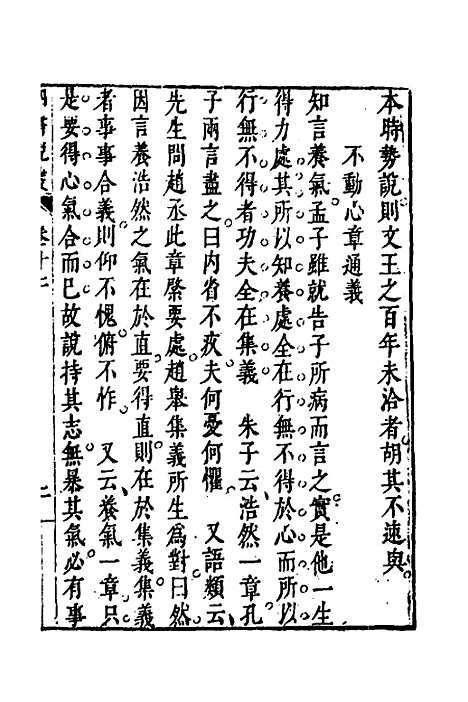 本時勢說則文王之百年未洽者胡其不速與
不動心章通義
知言養氣孟子雖就告子所病而言之實是他一生
得力處其所以知養處全在行無不得於心而所以
行無不得者功夫全在集義　朱子云浩然一章孔
子兩言盡之曰內省不疚夫何憂何懼　又語類云
先生問趙丞此章緊要處趙舉集義所生爲對曰然
因言養浩然之氣在於直要得直則在於集義集義
者事事合義則仰不愧俯不怍　又云養氣一章只
是要得心氣合而已故說持其志無暴其氣必有事
卷十二
二